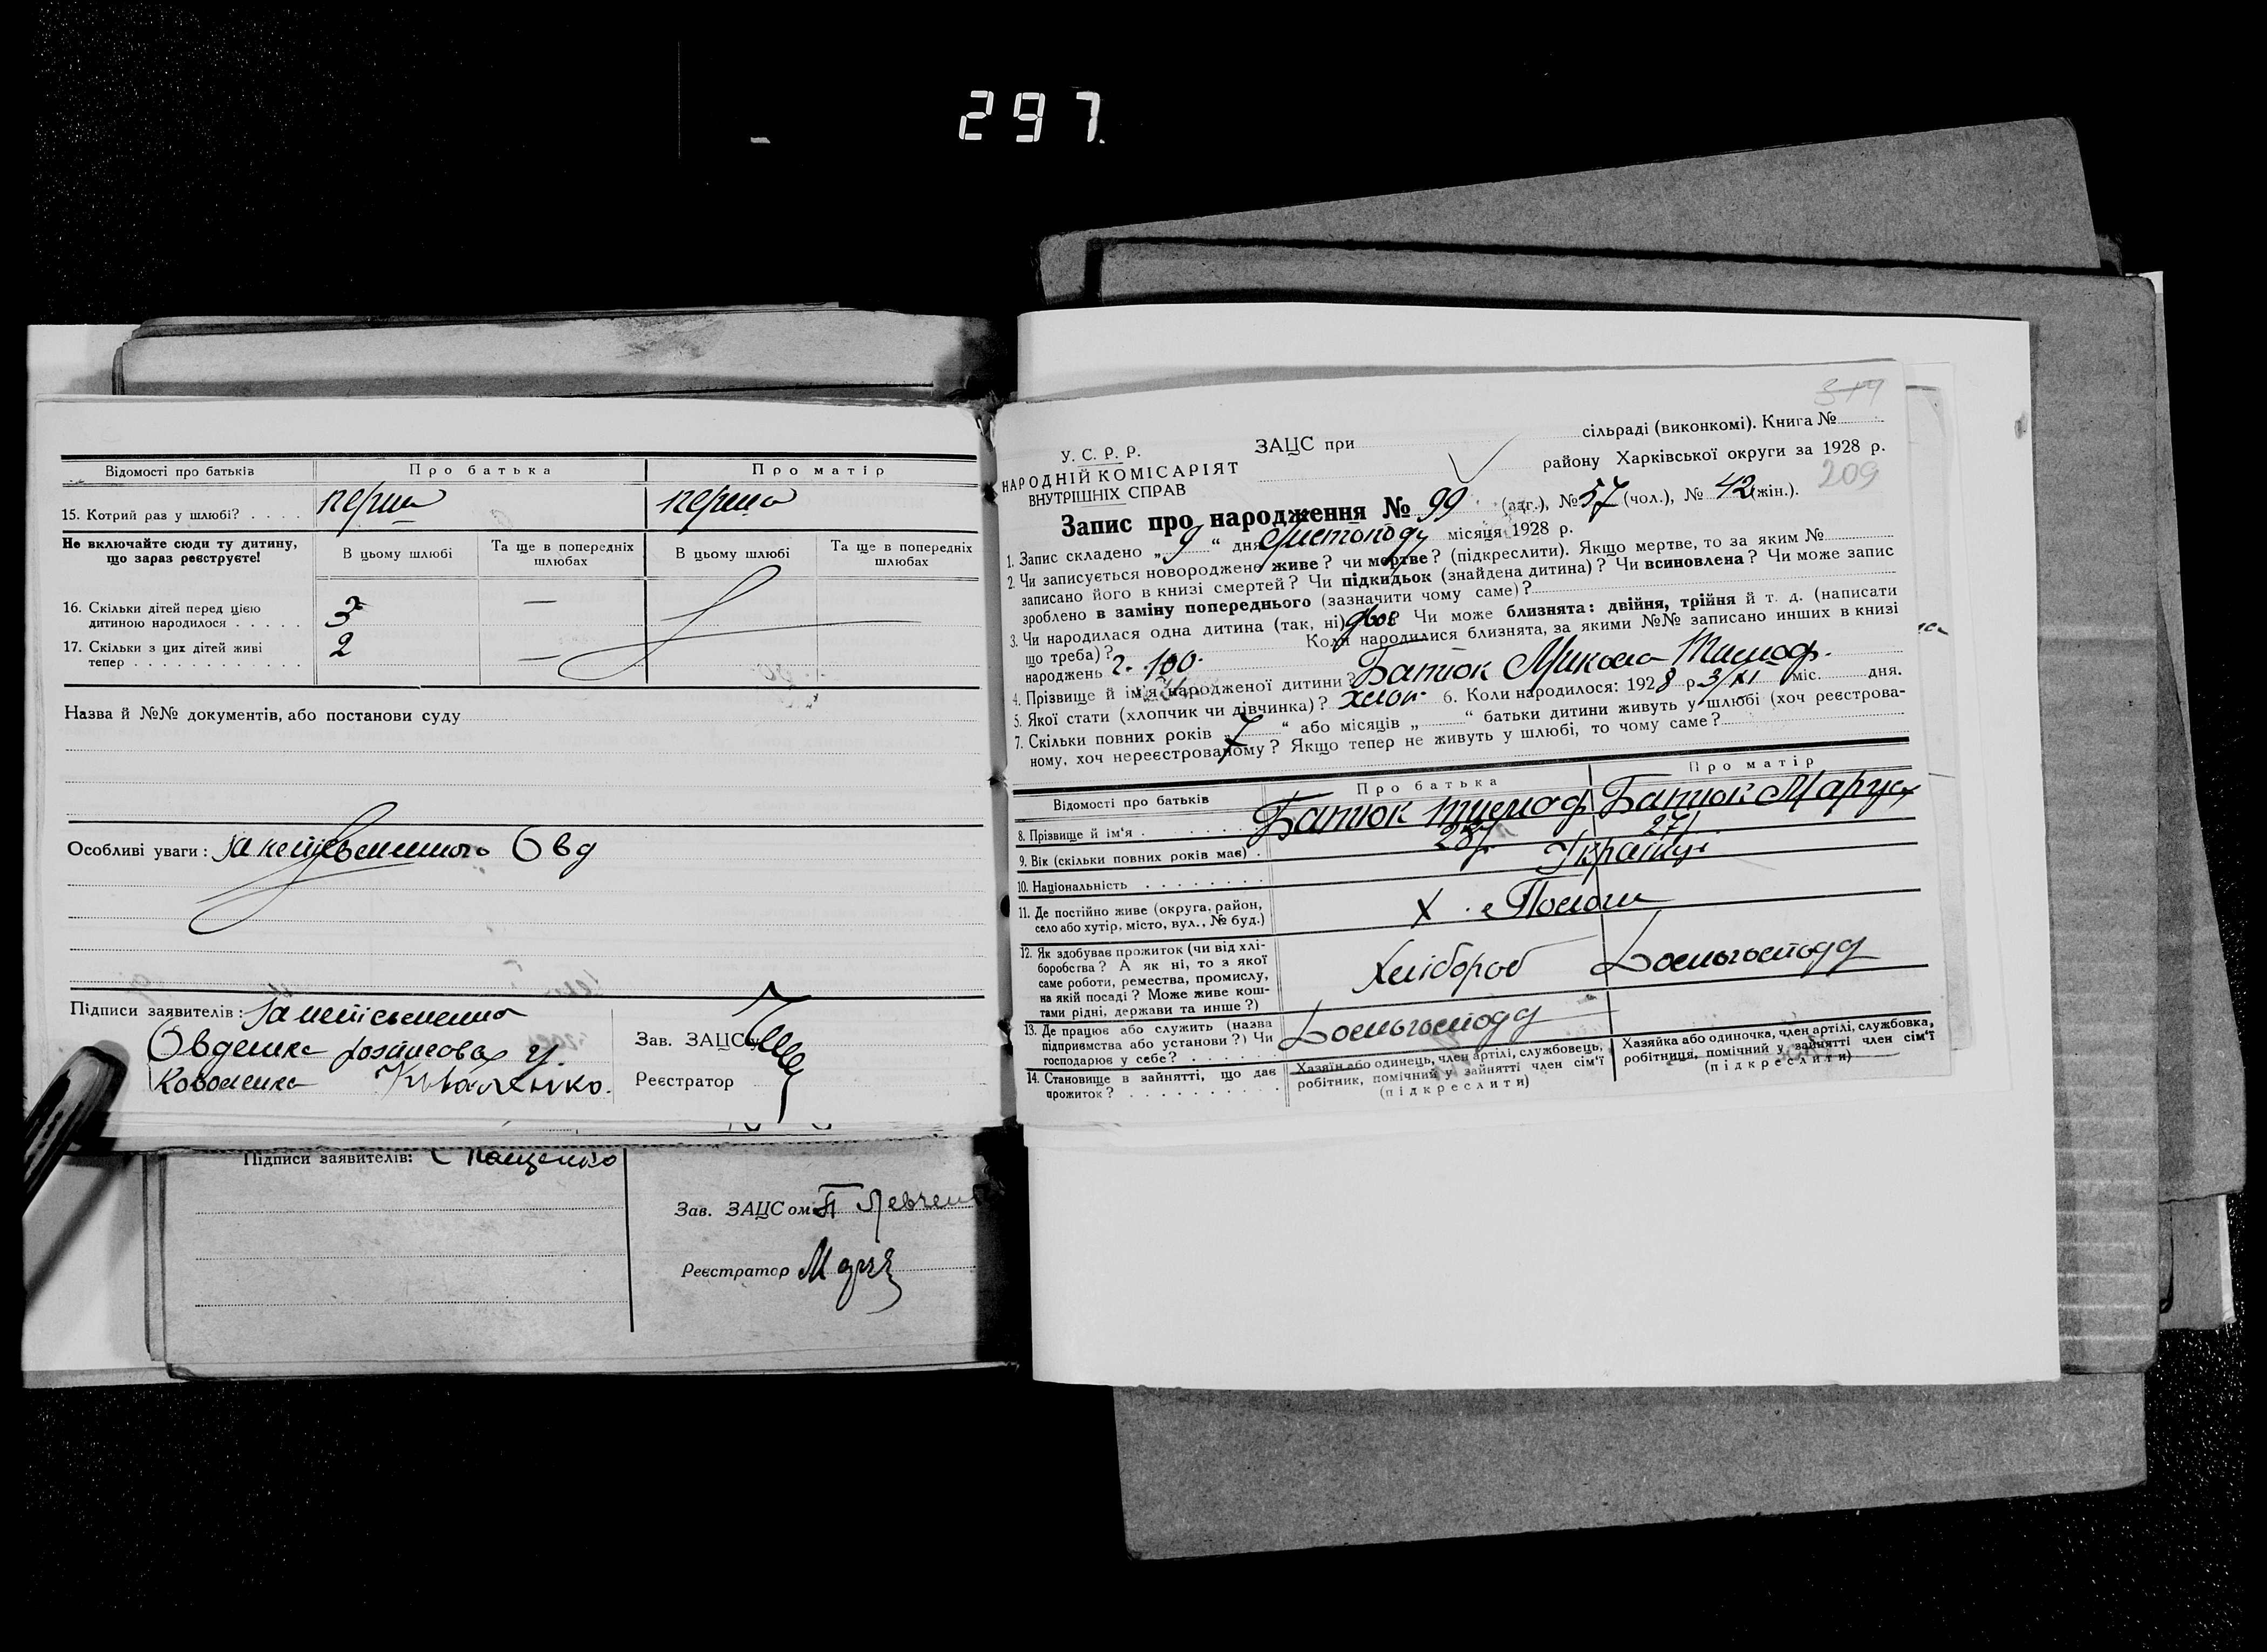 297.
Відомості про батьків
Про батька
Про матір
15. Котрий раз у шлюбі?
перши
перша
Не включайте сюди ту дитину,
що зараз реєструєте!
В цьому шлюбі
Та ще в попередніх
шлюбах
В цьому шлюбі
Та ще в попередніх
шлюбах
16. Скільки дітей перед цією
дитиною народилося
3
—
17. Скільки з цих дітей живі
тепер
2
—
Назва й №№ документів, або постанови суду
Особливі уваги:
Підписи заявителів:
Коваленко.
Зав. ЗАЦС
Реєстратор
Підписи заявителів:
Пащенко
Зав. ЗАЦС ом
Реєстратор
У. С. Р. Р.
НАРОДНІЙ КОМІСАРІЯТ
ВНУТРІШНІХ СПРАВ
ЗАЦС при
сільраді (виконкомі). Книга №
району Харківської округи за 1928 р.
209
Запис про народження № 99 (заг.), № 57 (чол.), № 42 (жін.).
1. Запис складено „ 9 “ дня Листопаду місяця 1928 р.
2. Чи записується новороджене живе? чи мертве? (підкреслити). Якщо мертве, то за яким №
записано його в книзі смертей? Чи підкидьок (знайдена дитина)? Чи всиновлена? Чи може запис
зроблено в заміну попереднього (зазначити чому саме)?
3. Чи народилася одна дитина (так, ні) двоє Чи може близнята: двійня, трійня й т. д. (написати
що треба)? Коли народилися близнята, за якими №№ записано инших в книзі
народжень 2. 100.
4. Прізвище й ім'я народженої дитини? Батюк Микола Тимоф.
5. Якої стати (хлопчик чи дівчинка)? хлоп. 6. Коли народилося: 1928 р. 3/XI міс. дня.
7. Скільки повних років „ 7 “ або місяців „ “ батьки дитини живуть у шлюбі (хоч реєстрова-
ному, хоч нереєстрованому? Якщо тепер не живуть у шлюбі, то чому саме?
Відомості про батьків
Про батька
Про матір
8. Прізвище й ім'я
Батюк Тимоф
Батюк Маруся
9. Вік (скільки повних років має)
28
27
10. Національність
Українці
11. Де постійно живе (округа, район,
село або хутір, місто, вул., № буд.)
12. Як здобуває прожиток (чи від хлі-
боробства? А як ні, то з якої
саме роботи, ремества, промислу,
на якій посаді? Може живе кош-
тами рідні, держави та инше?)
Хлібороб
Домогосподд
13. Де працює або служить (назва
підприємства або установи?) Чи
господарює у себе?
Домогосподд
14. Становище в зайнятті, що дає
прожиток?
Хазяїн або одинець, член артілі, службовець,
робітник, помічний у зайнятті член сім'ї
(підкреслити)
Хазяйка або одиночка, член артілі, службовка,
робітниця, помічний у зайнятті член сім'ї
(підкреслити)